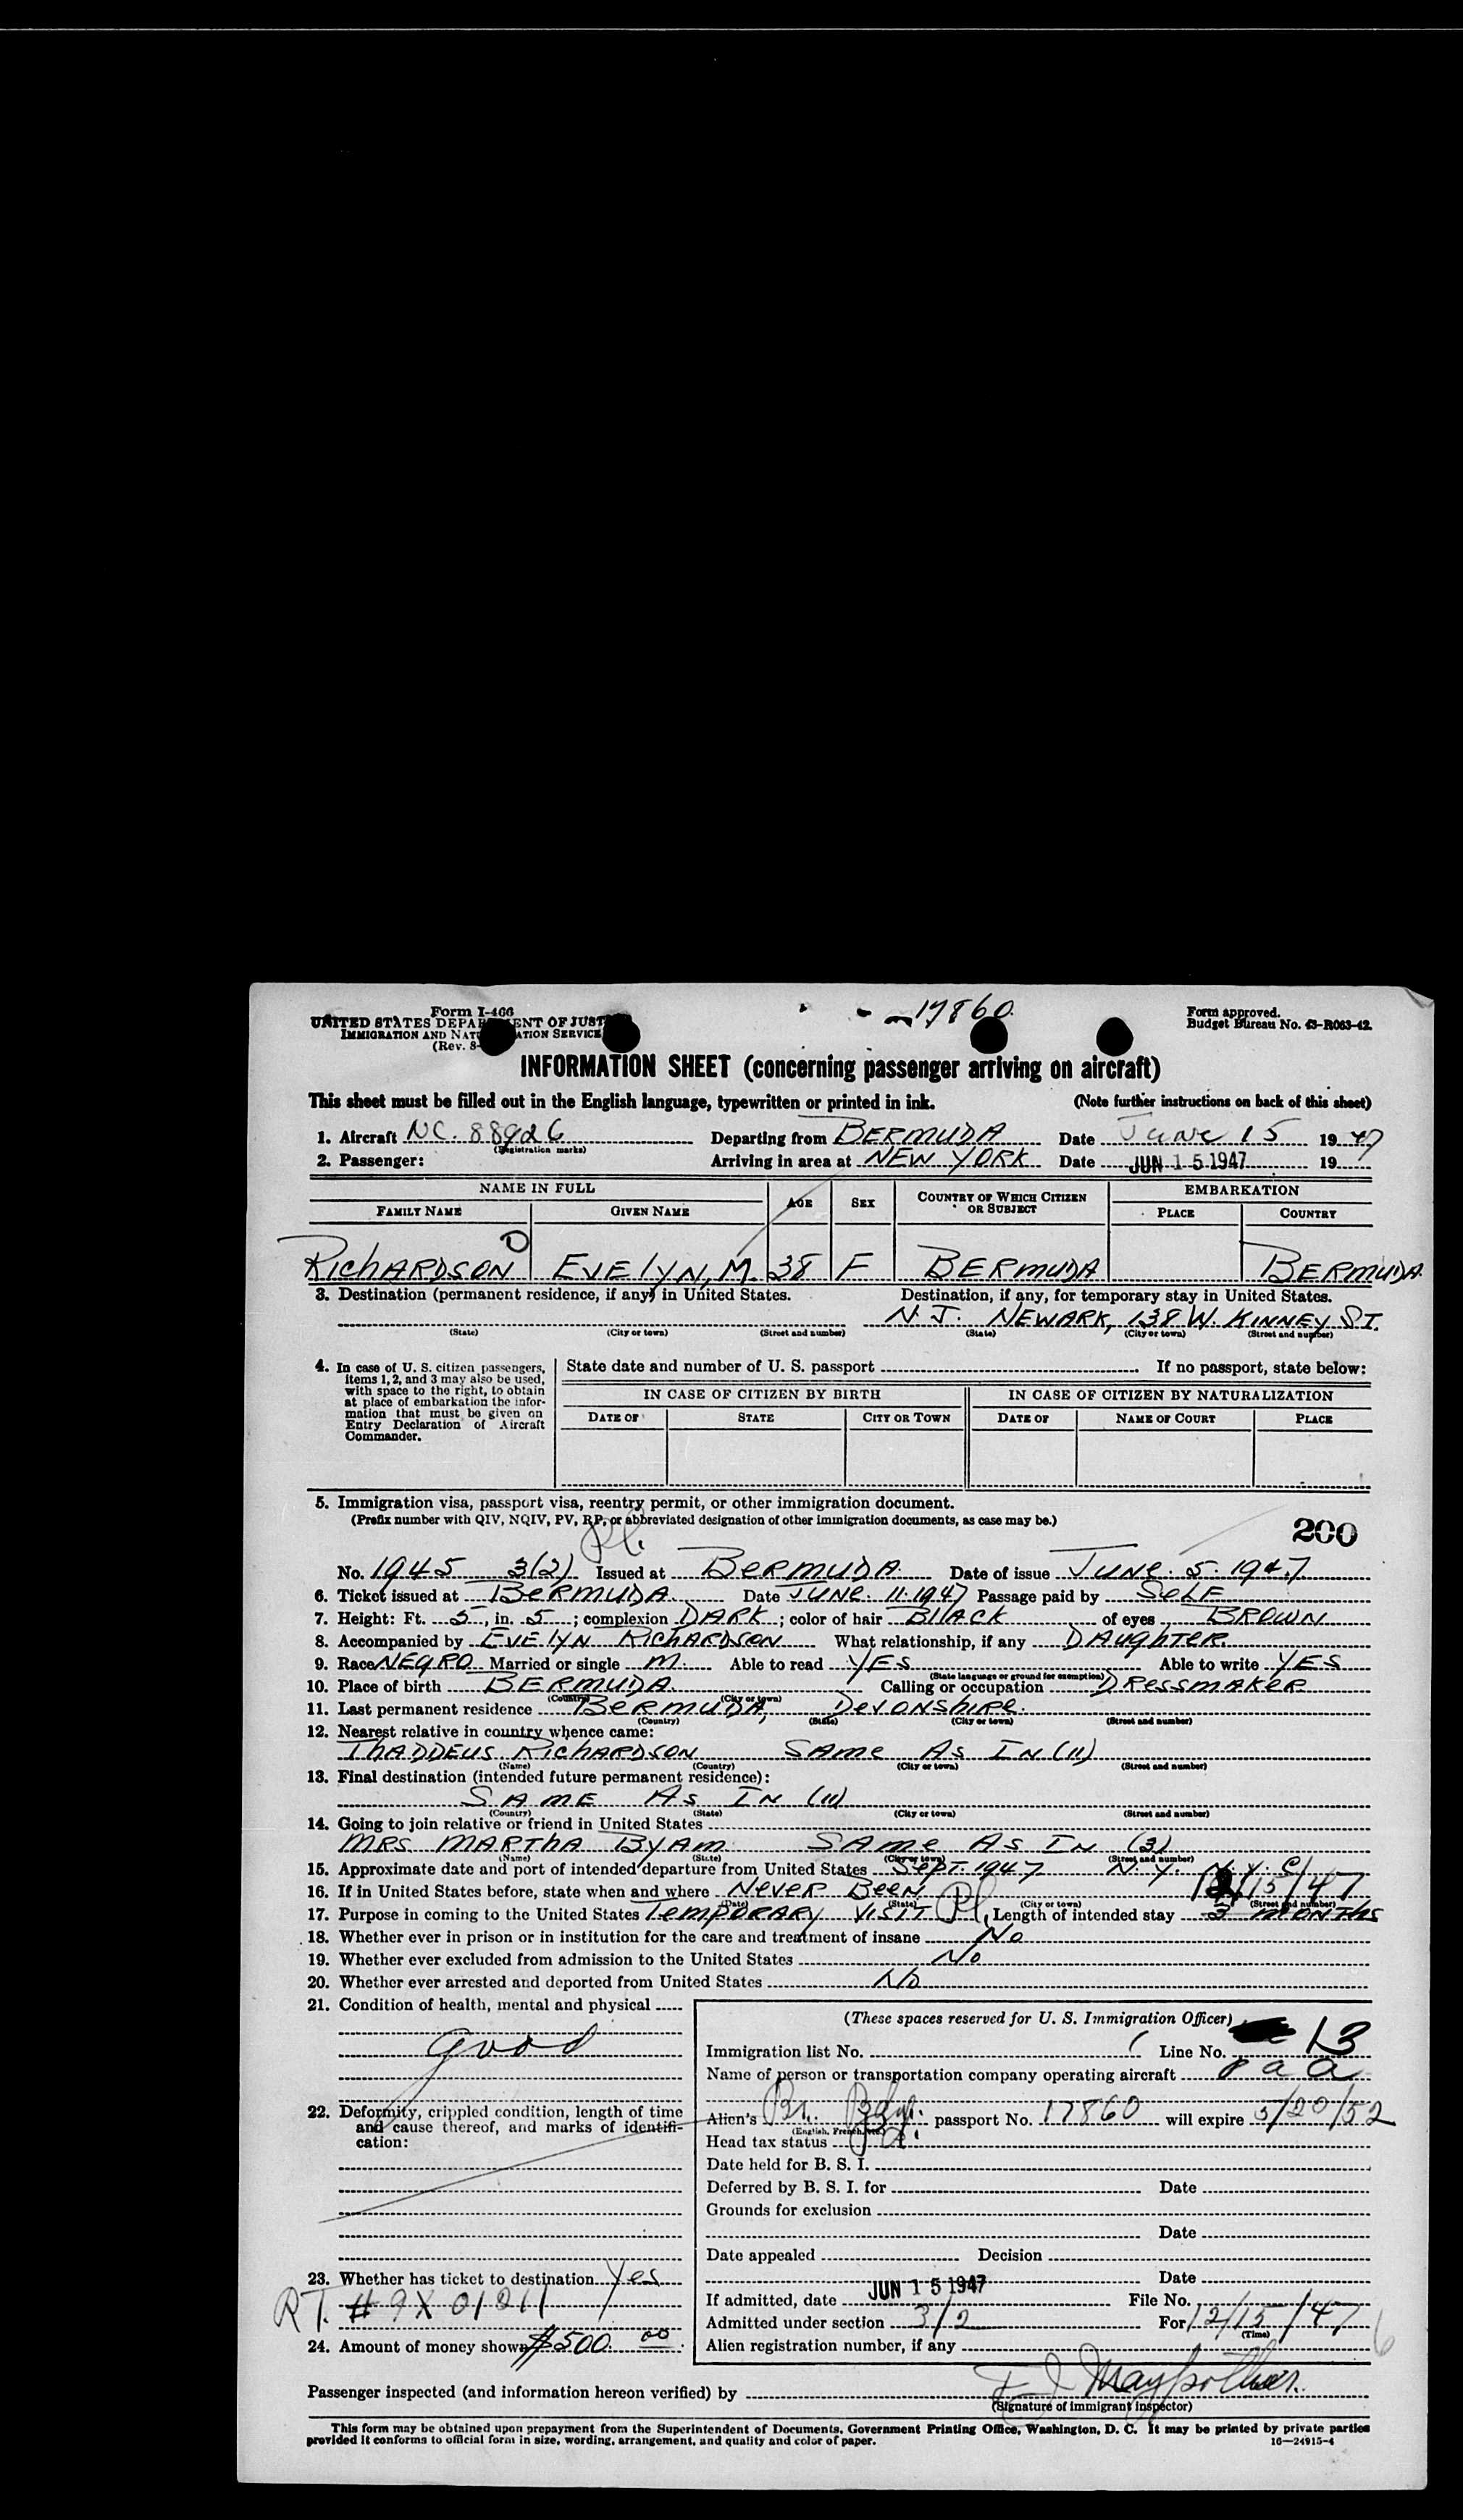 Form I-466
UNITED STATES DEPARTMENT OF JUSTICE
IMMIGRATION AND NATURALIZATION SERVICE
(Rev. 8-
17860
Form approved.
Budget Bureau No. 43-R063-42.
INFORMATION SHEET (concerning passenger arriving on aircraft)
This sheet must be filled out in the English language, typewritten or printed in ink. (Note further instructions on back of this sheet)
1. Aircraft NC. 88926 Departing from BERMUDA Date June 15 1947
(Registration marks)
2. Passenger: Arriving in area at NEW YORK Date JUN 15 1947 19
NAME IN FULL AGE SEX COUNTRY OF WHICH CITIZEN OR SUBJECT EMBARKATION
FAMILY NAME GIVEN NAME PLACE COUNTRY
RICHARDSON EVELYN, M. 38 F BERMUDA BERMUDA
3. Destination (permanent residence, if any) in United States. Destination, if any, for temporary stay in United States.
N.J. NEWARK, 138 W. KINNEY ST.
(State) (City or town) (Street and number) (State) (City or town) (Street and number)
4. In case of U. S. citizen passengers, items 1, 2, and 3 may also be used, with space to the right, to obtain at place of embarkation the information that must be given on Entry Declaration of Aircraft Commander.
State date and number of U. S. passport If no passport, state below:
IN CASE OF CITIZEN BY BIRTH IN CASE OF CITIZEN BY NATURALIZATION
DATE OF STATE CITY OR TOWN DATE OF NAME OF COURT PLACE
5. Immigration visa, passport visa, reentry permit, or other immigration document.
(Prefix number with QIV, NQIV, PV, RP, or abbreviated designation of other immigration documents, as case may be.)
200
No. 1945 3(2) Issued at BERMUDA. Date of issue JUNE. 5. 1947
6. Ticket issued at BERMUDA Date JUNE. 11. 1947 Passage paid by SELF
7. Height: Ft. 5, in. 5; complexion DARK; color of hair BLACK of eyes BROWN
8. Accompanied by EVELYN RICHARDSON What relationship, if any DAUGHTER
9. Race NEGRO Married or single M. Able to read YES Able to write YES
(State language or ground for exemption)
10. Place of birth BERMUDA. Calling or occupation DRESSMAKER
(Country) (City or town)
11. Last permanent residence BERMUDA, DEVONSHIRE.
(Country) (State) (City or town) (Street and number)
12. Nearest relative in country whence came:
THADDEUS RICHARDSON SAME AS IN (11)
(Name) (Country) (City or town) (Street and number)
13. Final destination (intended future permanent residence):
SAME AS IN (11)
(Country) (State) (City or town) (Street and number)
14. Going to join relative or friend in United States
MRS. MARTHA BYAM SAME AS IN (3)
(Name) (State) (City or town) (Street and number)
15. Approximate date and port of intended departure from United States SEPT. 1947 N.Y. N.Y.C.
16. If in United States before, state when and where NEVER BEEN 12/15/47
(Date) (State) (City or town) (Street and number)
17. Purpose in coming to the United States TEMPORARY VISIT Pl. Length of intended stay 3 MONTHS
18. Whether ever in prison or in institution for the care and treatment of insane No
19. Whether ever excluded from admission to the United States No
20. Whether ever arrested and deported from United States No
21. Condition of health, mental and physical
good
22. Deformity, crippled condition, length of time and cause thereof, and marks of identification:
23. Whether has ticket to destination Yes
RT. # 9X 01211
24. Amount of money shown $500.00
(These spaces reserved for U. S. Immigration Officer)
Immigration list No. Line No. 13
Name of person or transportation company operating aircraft P a a
Alien's Br. passport No. 17860 will expire 5/20/52
(English, French, etc.)
Head tax status
Date held for B. S. I.
Deferred by B. S. I. for Date
Grounds for exclusion
Date
Date appealed Decision
Date
If admitted, date JUN 15 1947 File No.
Admitted under section 3/2 For 12/15/47
(Time)
Alien registration number, if any
Passenger inspected (and information hereon verified) by
(Signature of immigrant inspector)
This form may be obtained upon prepayment from the Superintendent of Documents, Government Printing Office, Washington, D. C. It may be printed by private parties
provided it conforms to official form in size, wording, arrangement, and quality and color of paper. 16—24915-4